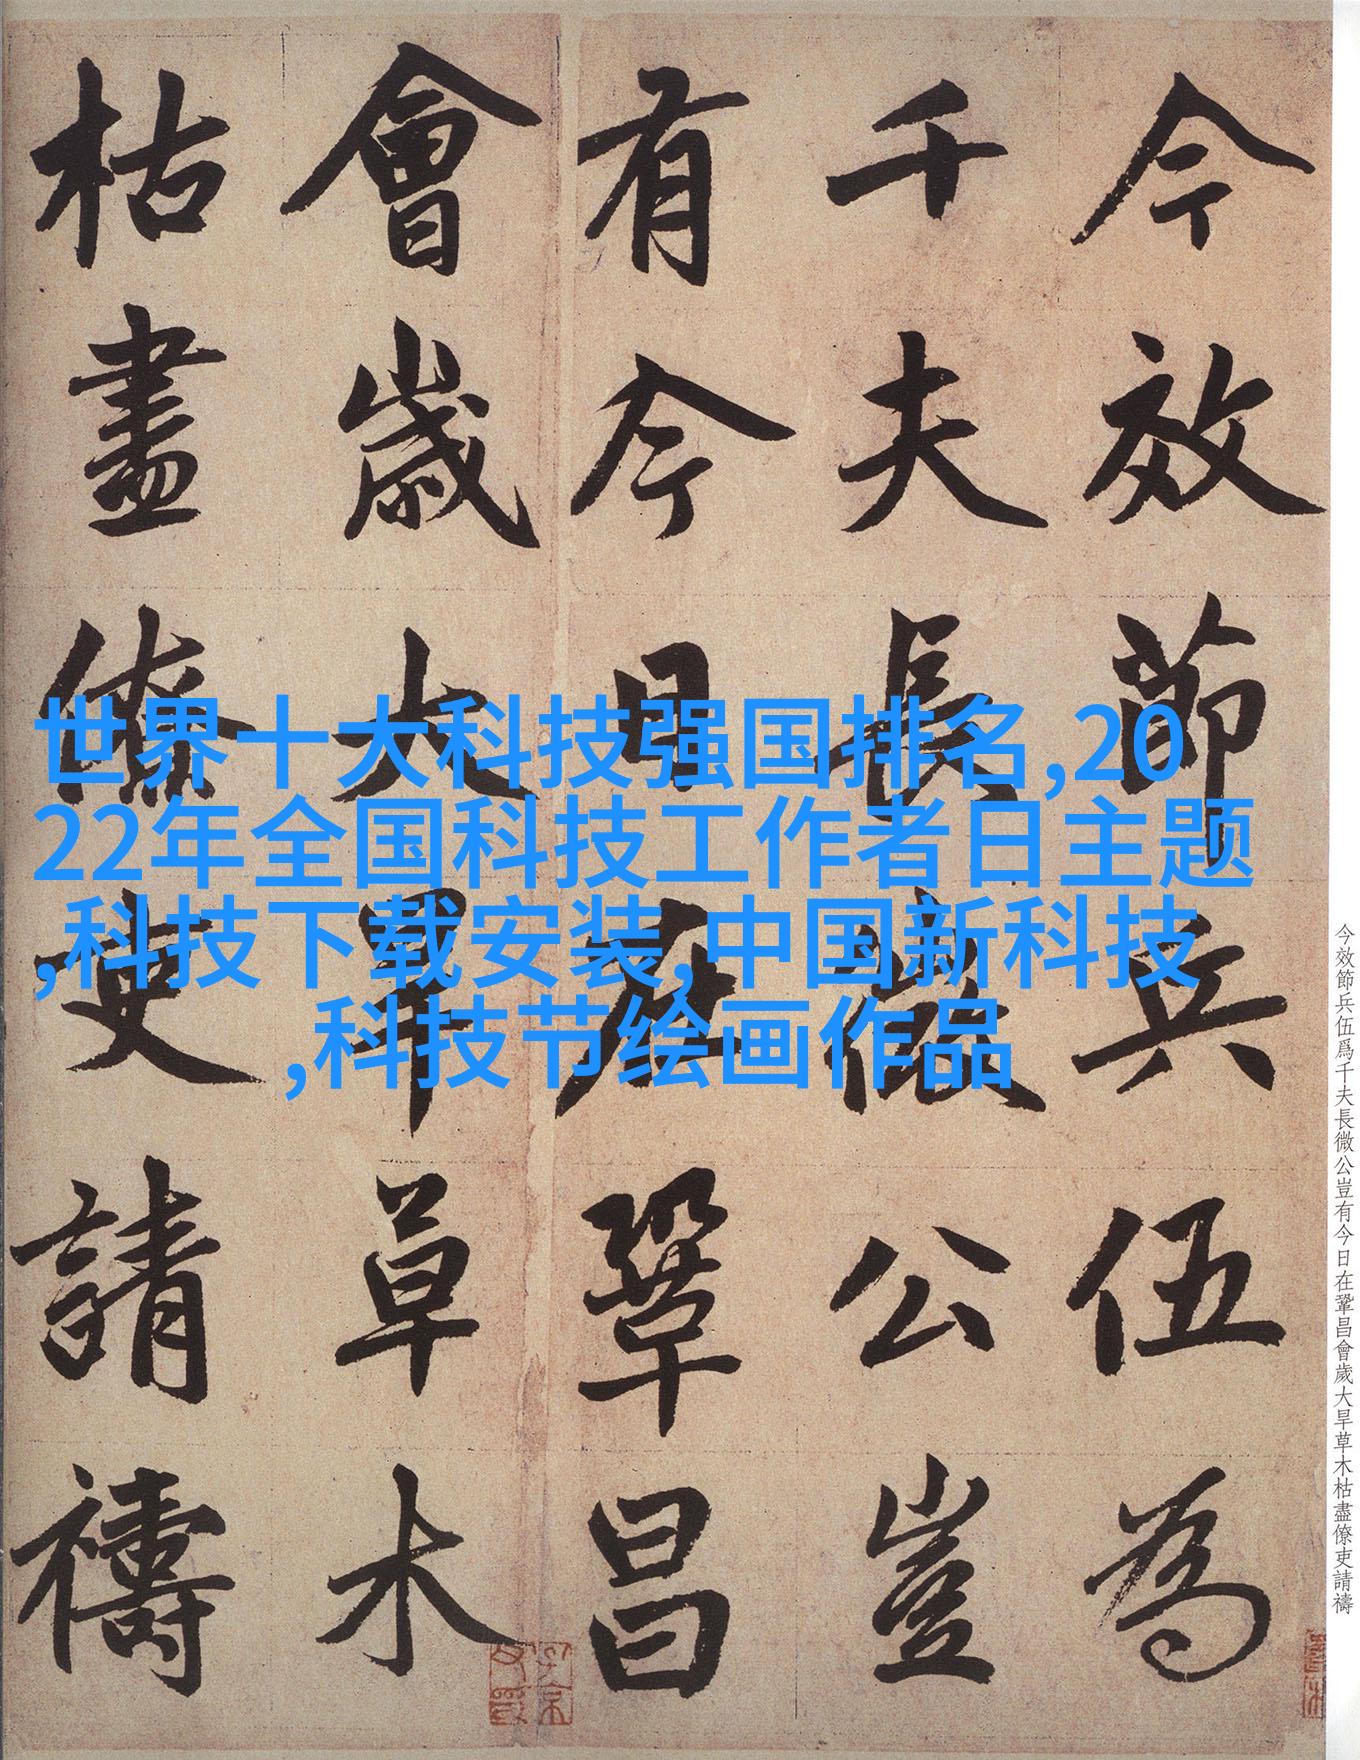 今效節兵伍為
千夫長微公豈
有今日在鞏昌
會歲大旱草木
枯盡僚吏請禱
世界十大科技强国排名,20
22年全国科技工作者日主题
,科技下载安装,中国新科技
,科技节绘画作品
今效節兵伍爲千夫長微公豈有今日在鞏昌會歲大旱草木枯盡僚吏請禱